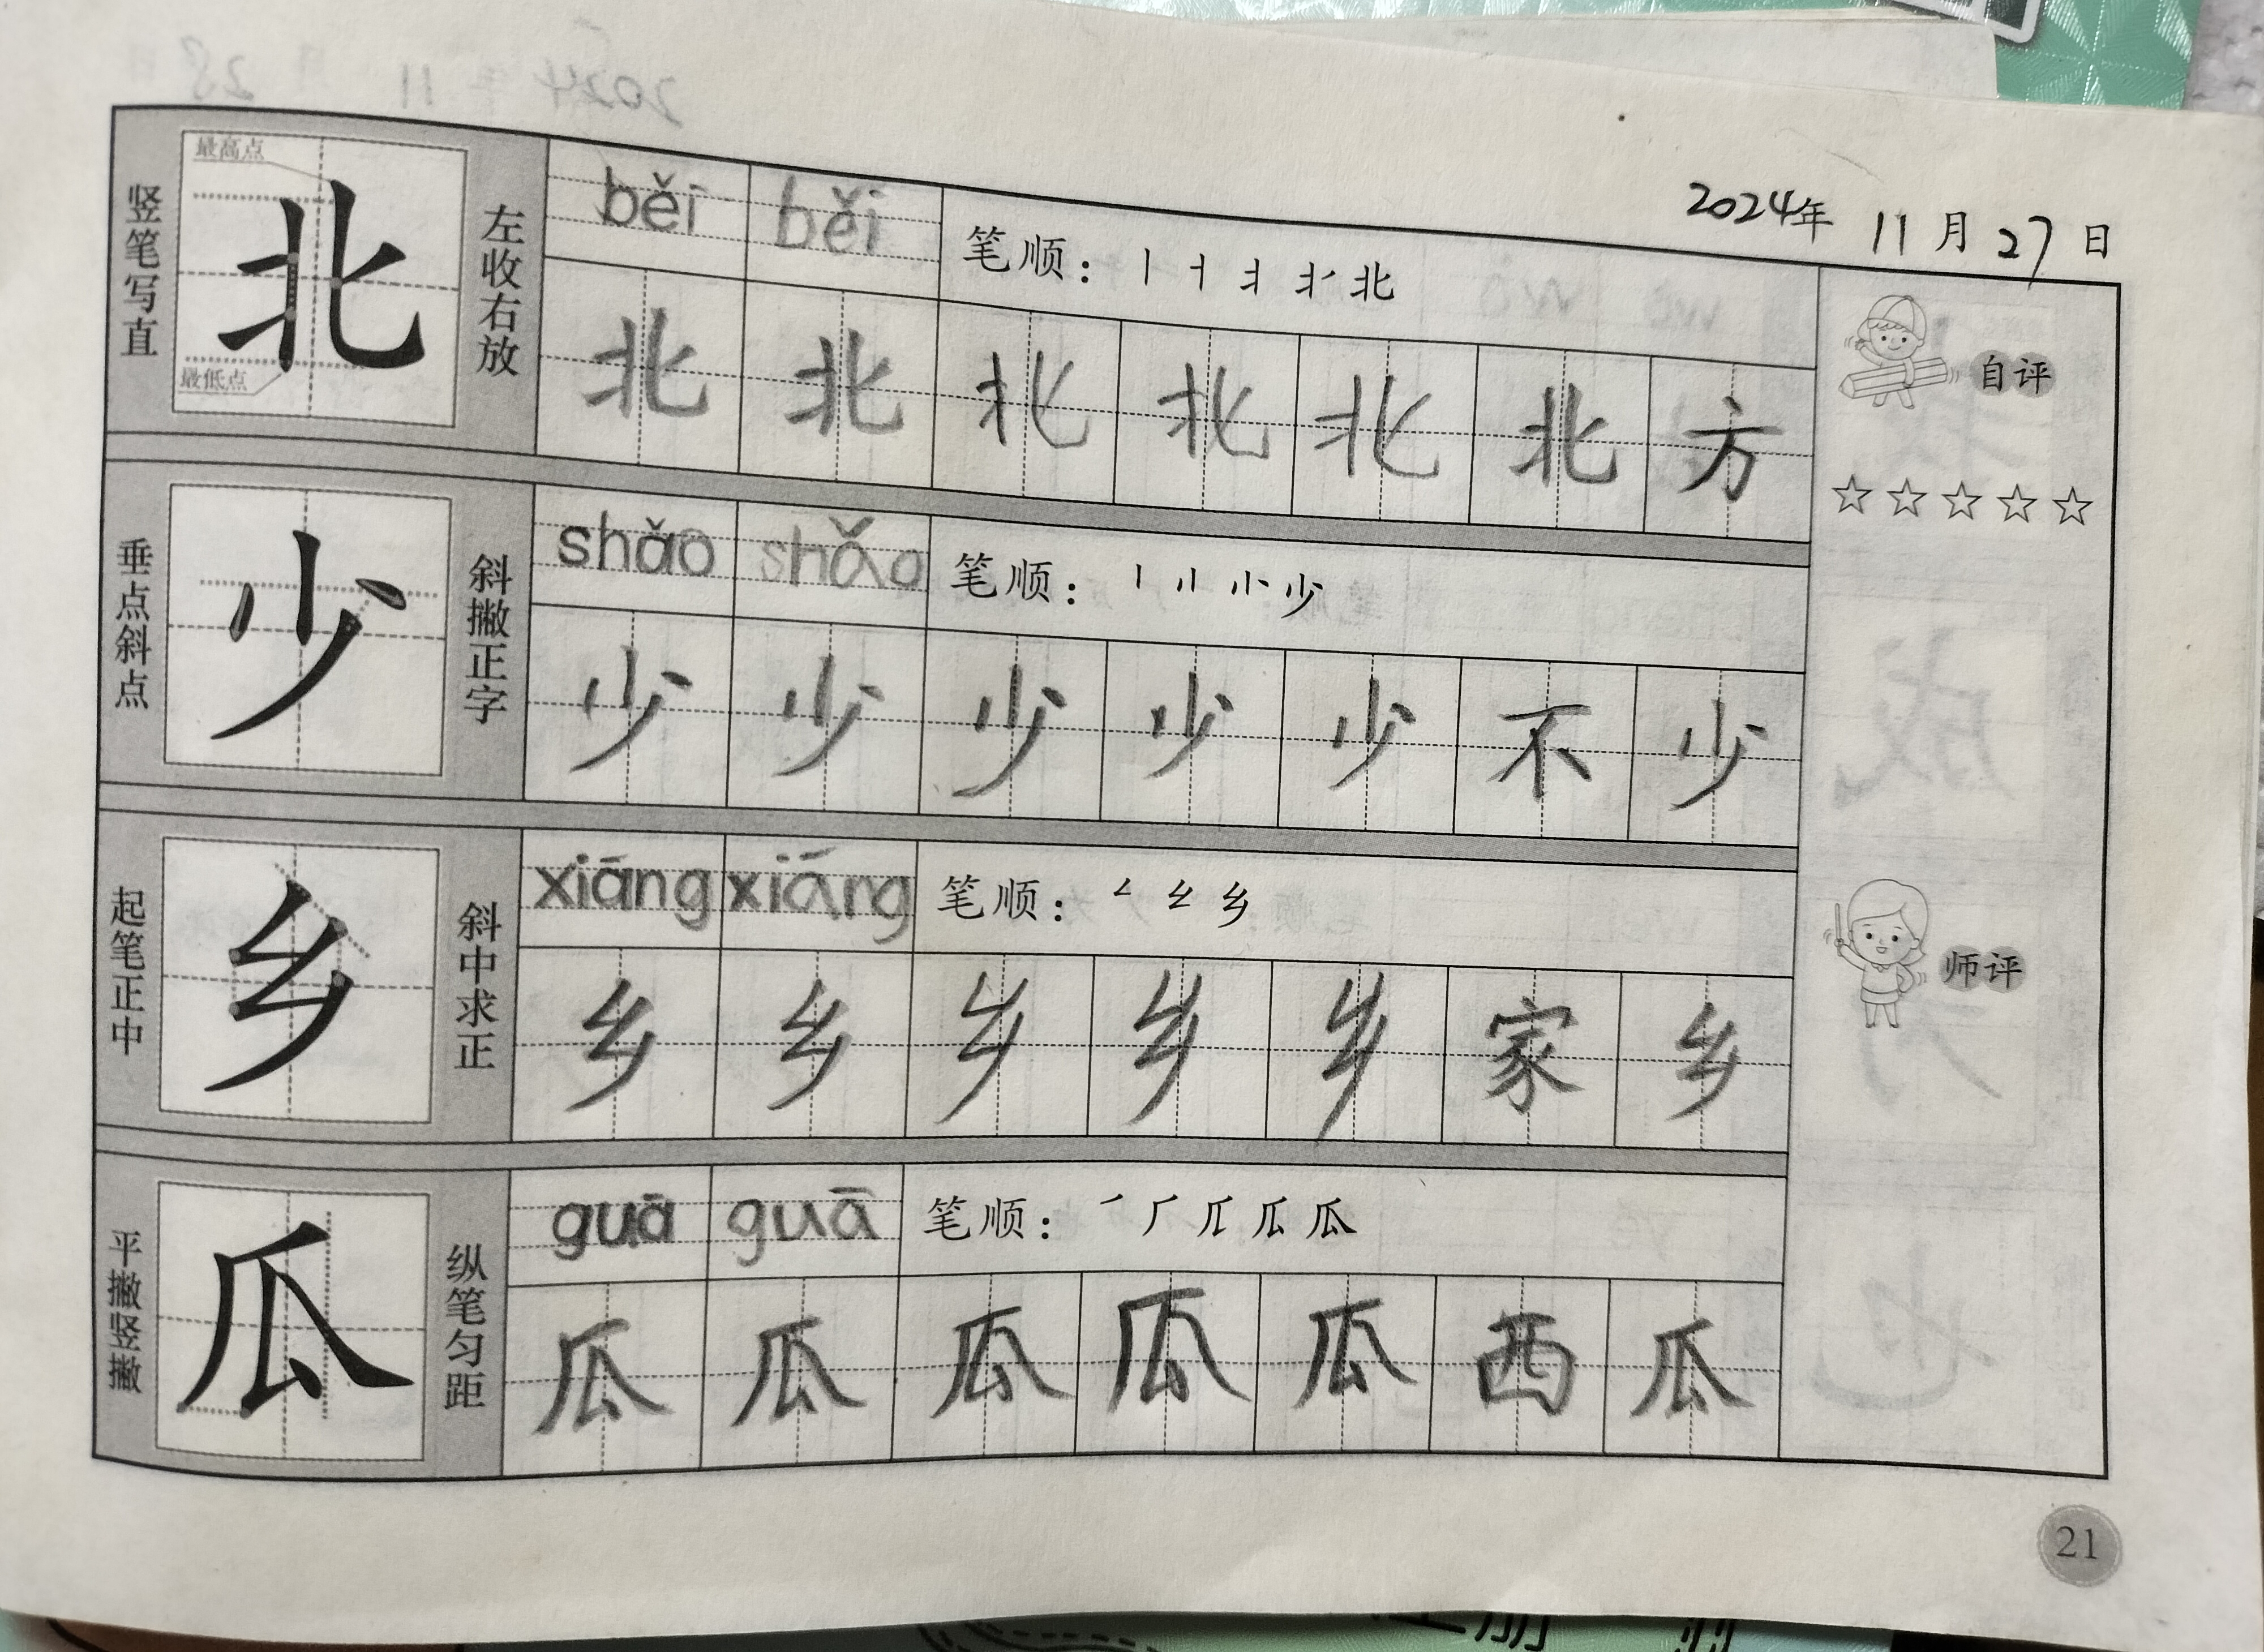 2024年 11月28日
2024年 11月27日
竖笔写直
最高点
北
最低点
左收右放
běi běi
笔顺：丨 北
北 北 北 北 北 北 方
自评
☆☆☆☆☆
垂点斜点
少
斜撇正字
shǎo shǎo
笔顺：丨 小 少
少 少 少 少 少 不 少
起笔正中
乡
斜中求正
xiāng xiāng
笔顺：乡
乡 乡 乡 乡 乡 家 乡
师评
平撇竖撇
瓜
纵笔匀距
guā guā
笔顺：瓜
瓜 瓜 瓜 瓜 瓜 西 瓜
21